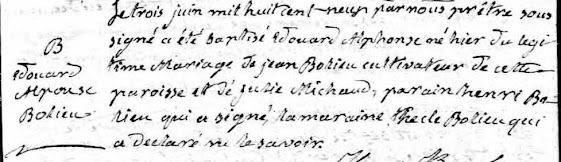 B
Edouard
Alponse
Bolieu
Le trois juin mil huit cent-neuf par nous prêtre sous
signé a été baptisé Edouard Alphonse né hier du légi
time Mariage de jean Bolieu cultivateur de cette
paroisse et de julie Michaud, parain henri Bo-
lieu qui a signé la maraine thecle Bolieu qui
a déclaré ne le savoir.